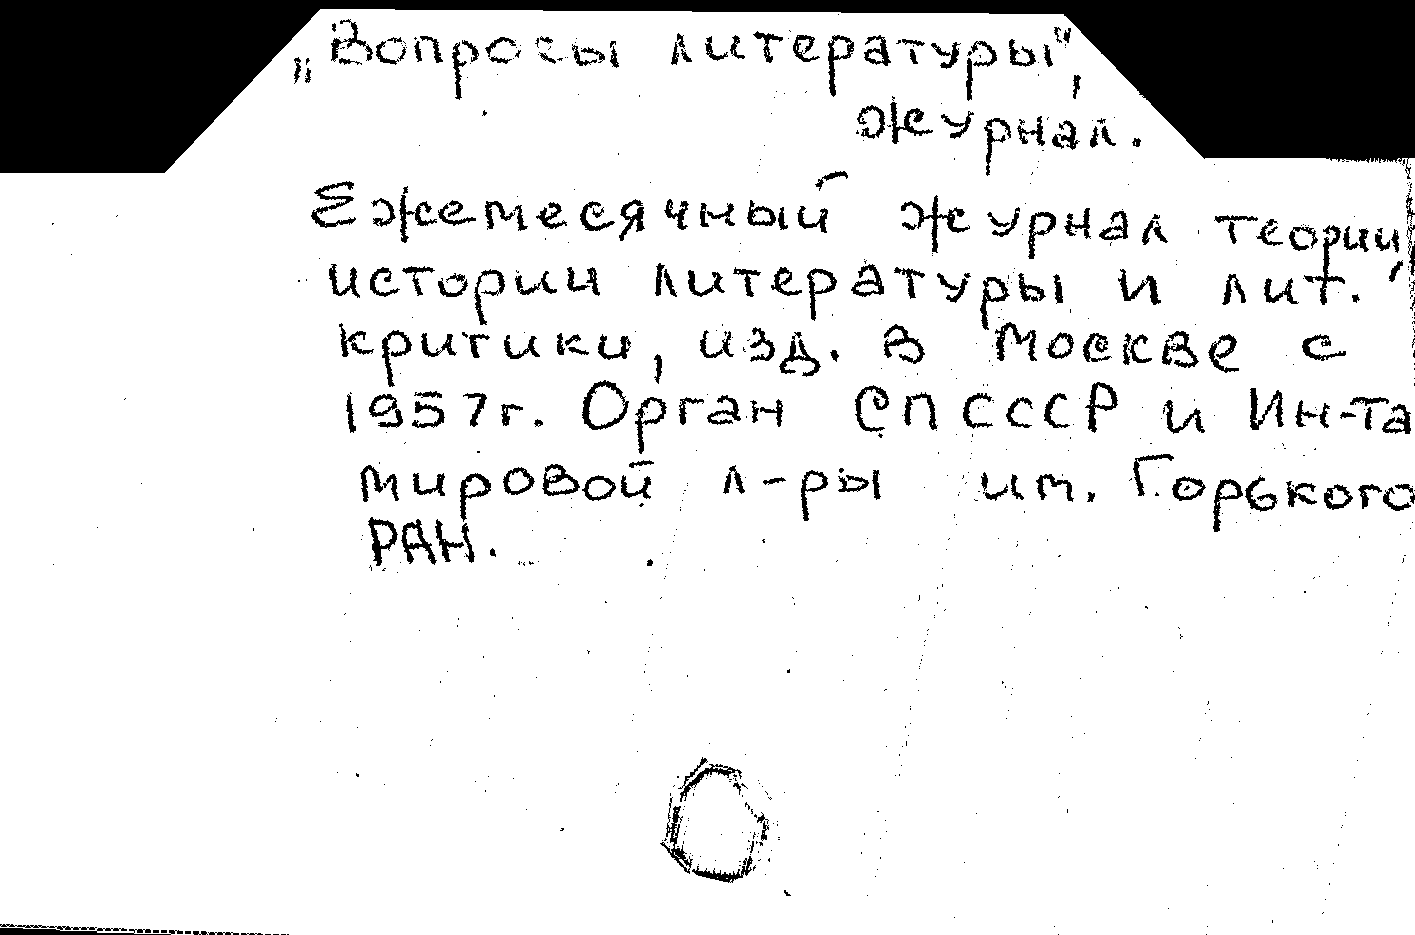 „Вопросы литературы",
журнал.
Ежемесячный журнал теории,
истории литературы и лит.
критики, изд. в Москве с
1957г. Орган СП СССР и Ин-та
мировой л-ры им. Горького
РАН.